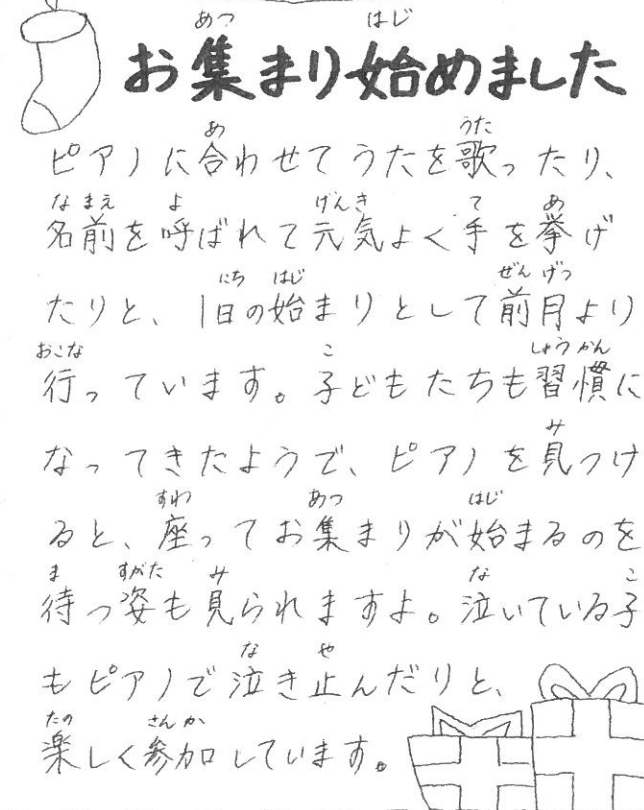 お集まり始めました
ピアノに合わせてうたを歌ったり、
名前を呼ばれて元気よく手を挙げ
たりと、1日の始まりとして前月より
行っています。子どもたちも習慣に
なってきたようで、ピアノを見つけ
ると、座ってお集まりが始まるのを
待つ姿も見られますよ。泣いている子
もピアノで泣き止んだりと、
楽しく参加しています。